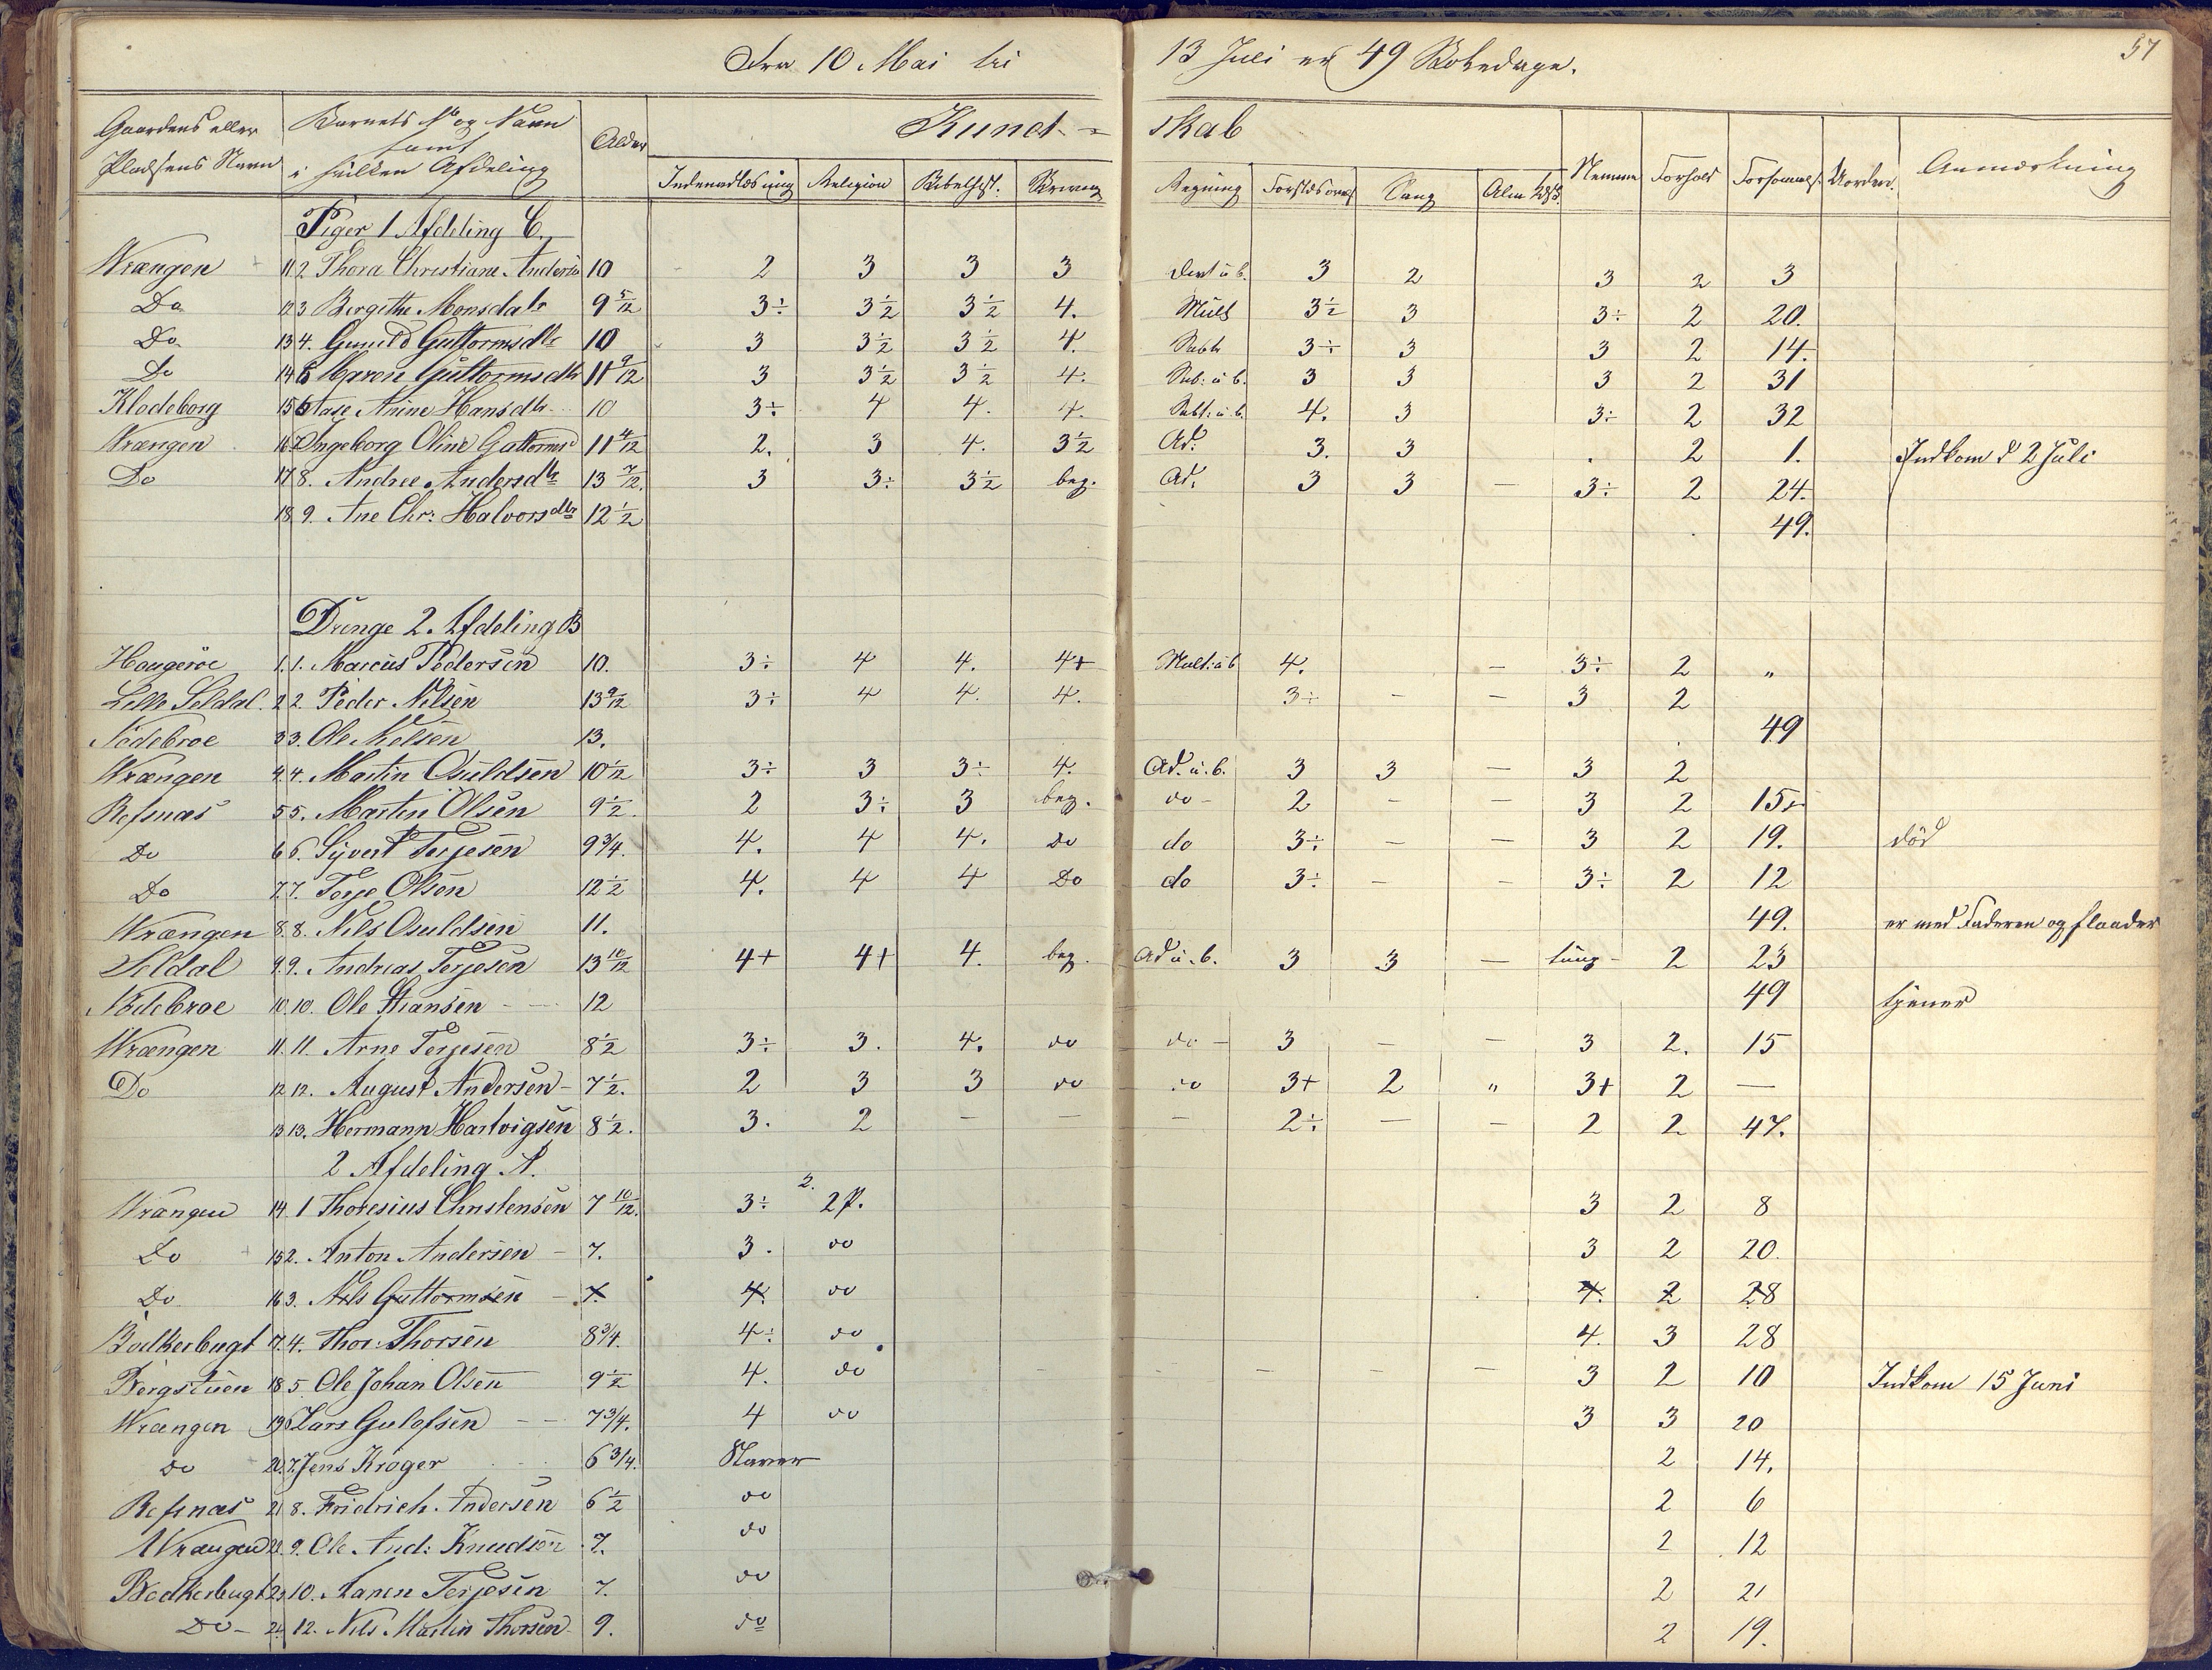 57
Fra 10 Mai til 13 Juli er 49 Skoledage.
Gaardens eller Pladsens Navn | Barnets No og Navn samt i hvilken Afdeling | Alder | Kund-skab | Nemme | Forhold | Forsømmels. | Uorden. | Anmærkning
Indenadlæsning | Religion | Bibelhist. | Skrivning | Regning | Sang
Piger 1 Afdeling C.
Wrængen 11 2. Thora Christiane Anders 10 2 3 3 3 3 2 3 2 3
Do 12 3 Bergitte Monsdatr 9 5/12 3÷ 3½ 3½ 4. Mult 3½ 3 3÷ 2 20.
Do 13 4. Gunild Guttormsdtr 10 3 3½ 3½ 4. Subtr 3÷ 3 3 2 14.
Do 14 5 Maren Guttormsdtr 11 9/12 3 3½ 3½ 4. Sub: u b. 3 3 3 2 31
Klodeborg 15 6 Aase Anine Hansdtr 10 3÷ 4 4. 4. Subt: u. b. 4. 3 3÷ 2 32
Wrængen 16 7 Ingeborg Oline Guttormsd 11 4/12 2. 3 4. 3½ Ad. 3. 3 . 2 1. Indkom d 2 Juli
Do 17 8. Andree Andersdtr 13 7/12. 3 3÷ 3½ beg. Ad. 3 3 — 3÷ 2 24.
18 9. Ane Chr: Halvorsdtr 12½ 49.
Drenge 2. Afdeling B
Haugeröe 1. 1. Marcus Pedersen 10. 3÷ 4 4. 4+ Mult: u b 4. — 3÷ 2 „
Lille Seldal. 2 2. Peder Nilsen 13 9/12 3÷ 4 4. 4. 3÷ — — 3 2
Nödebroe 3 3. Ole Nielsen 13. 49
Wrængen 4. 4. Martin Osuldsen 10½ 3÷ 3 3÷ 4. Ad. u. b. 3 3 — 3 2
Refsnæs 5 5. Martin Olsen 9½. 2 3÷ 3 beg. do - 2 — — 3 2 15
Do 6 6. Syvert Terjesen 9¾. 4. 4 4. Do do 3÷ — — 3 2 19. död
Do 7. 7. Terje Olsen 12½ 4. 4 4 Do do 3÷ — — 3÷ 2 12
Wrængen 8. 8. Nils Osuldsen 11. 49. er med Faderen og flaader
Seldal 9. 9. Andreas Terjesen 13 10/12 4+ 4+ 4. beg. Ad u. b. 3 3 — tung - 2 23
Nödebroe 10. 10. Ole Hansen 12 49 tjener
Wrængen 11. 11. Arne Terjesen 8½ 3÷ 3. 4. do do - 3 — — 3 2. 15
Do 12 12. August Andersen - 7½. 2 3 3 do do 3+ 2 „ 3+ 2 —
13 13. Hermann Hartvigsen 8½. 3. 2 — — — 2÷ — — 2 2 47.
2 Afdeling A.
Wrængen 14. 1 Thoresius Christensen 7 10/12. 3÷ 2. 2 P. 3 2 8
Do 15 2. Anton Andersen - 7. 3. do 3 2 20.
Do 16 3. Nils Guttormsen - 7. 4. do 4. 2 28
Bodkerbugt 17. 4. Thor Thorsen 8¾. 4÷ do 4. 3 28
Bergstuen 18 5. Ole Johan Olsen 9½ 4. do — — — — 3 2 10 Indkom 15 Juni
Wrængen 19 6 Lars Gulofsen 7¾. 4 do 3 3 20
do 20. 7. Jens Kröger 6¾. Staver 2 14.
Refsnæs 21 8. Fridrich. Andersen 6½ do 2 6
Wrængen 22. 9. Ole And: Knudsen 7. do 2 12
Bodkerbugt 23 10. Aanen Terjesen 7. do 2 21
Do - 24 12. Nils Martin Thorsen 9. do 2 19.